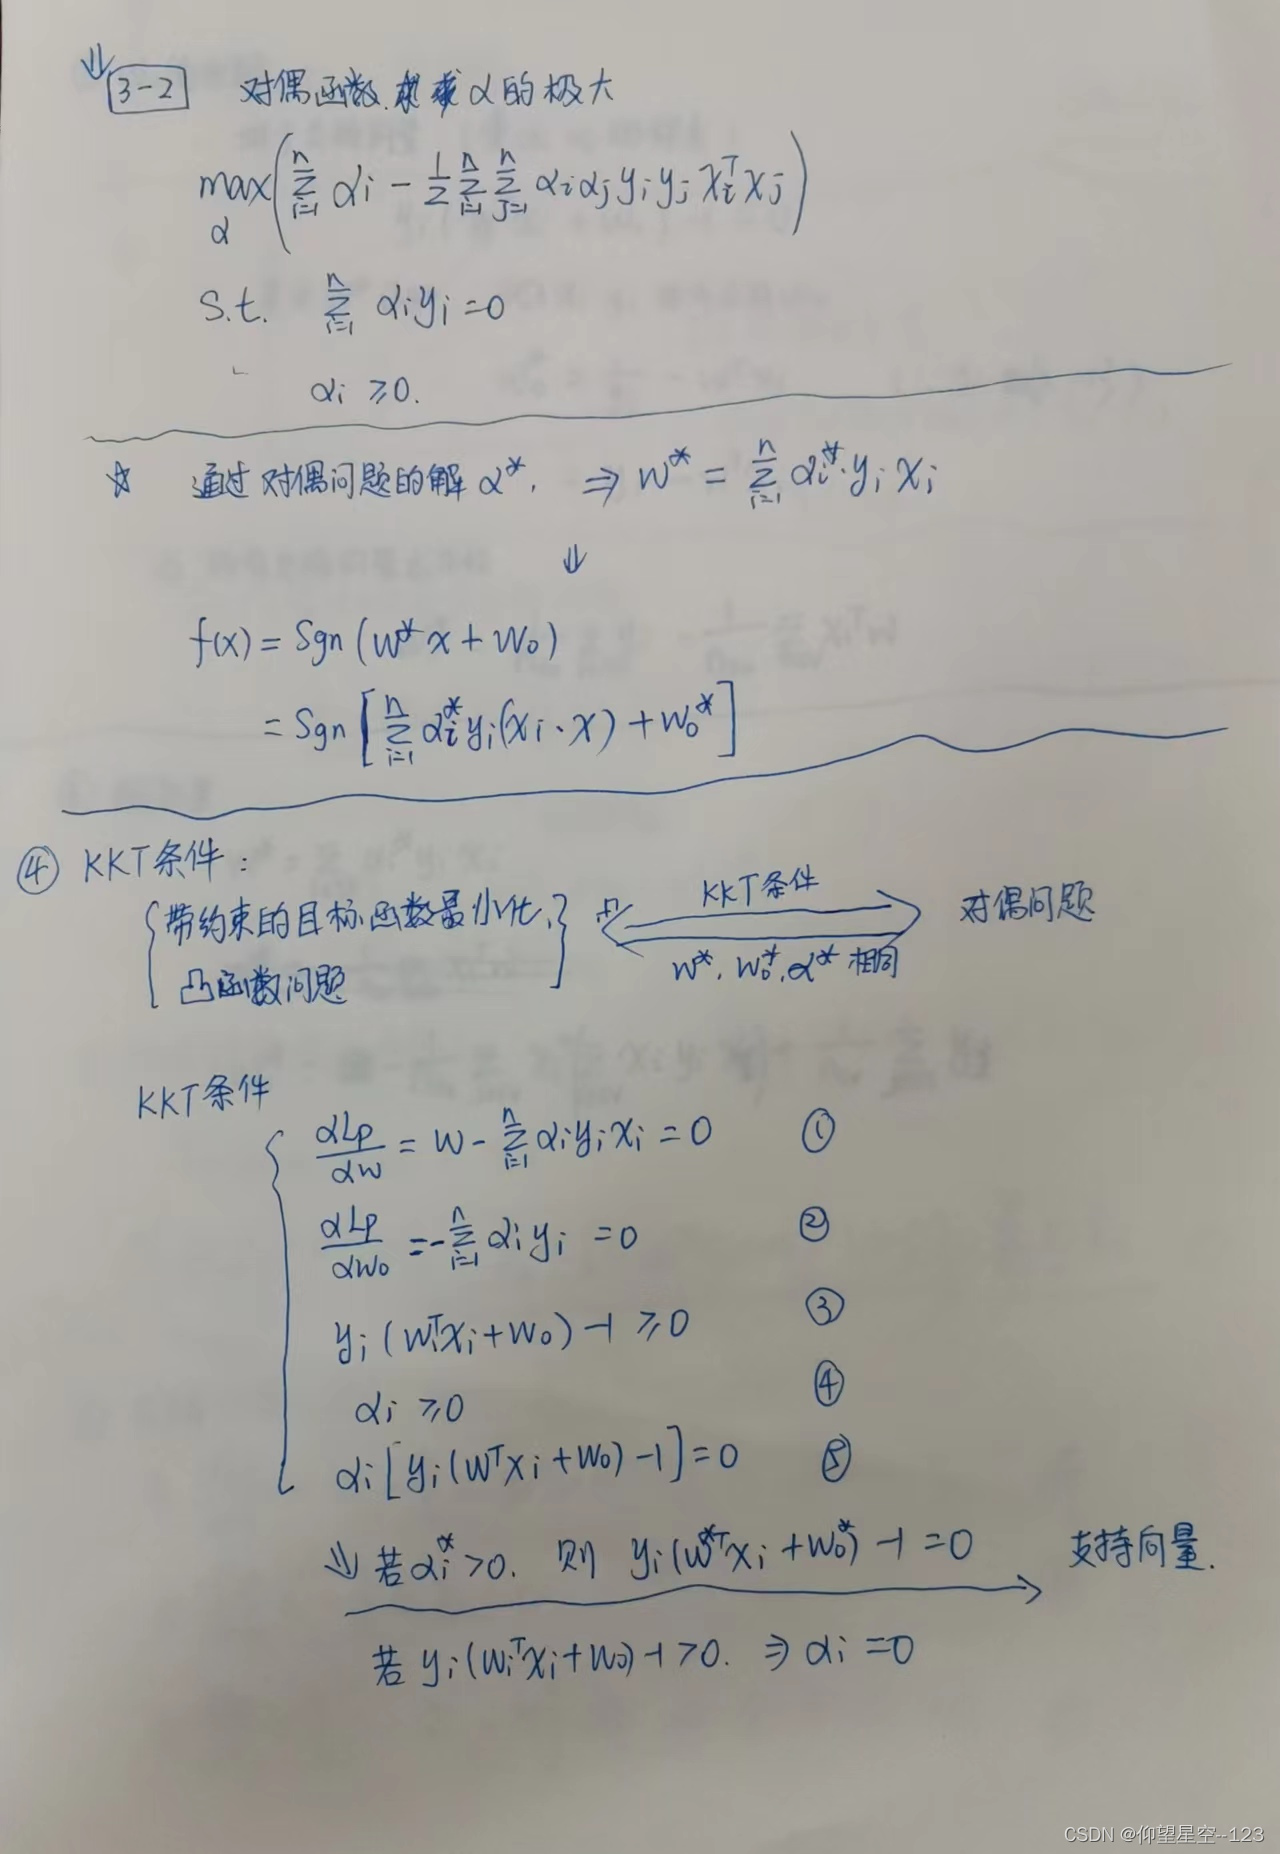 3-2 对偶函数求α的极大
max_α ( Σ_{i=1}^{n} αi - 1/2 Σ_{i=1}^{n} Σ_{j=1}^{n} αiαjyiyj xi^T xj )
s.t. Σ_{i=1}^{n} αiyi = 0
αi ≥ 0.
☆ 通过对偶问题的解α*, ⇒ w* = Σ_{i=1}^{n} αi*·yixi
⇓
f(x) = Sgn (w*x + w0)
= Sgn [ Σ_{i=1}^{n} αi*yi(xi·x) + w0* ]
④ KKT条件:
{带约束的目标函数最小化, 凸函数问题} KKT条件 对偶问题
w*, w0*, α* 相同
KKT条件
αLp/αw = w - Σ_{i=1}^{n} αiyixi = 0 ①
αLp/αw0 = -Σ_{i=1}^{n} αiyi = 0 ②
yi(wi^T xi + w0) - 1 ≥ 0 ③
αi ≥ 0 ④
αi[yi(w^T xi + w0) - 1] = 0 ⑤
⇓ 若αi* > 0. 则 yi(w*^T xi + w0*) - 1 = 0 支持向量.
若 yi(wi^T xi + w0) - 1 > 0. ⇒ αi = 0
CSDN @仰望星空--123